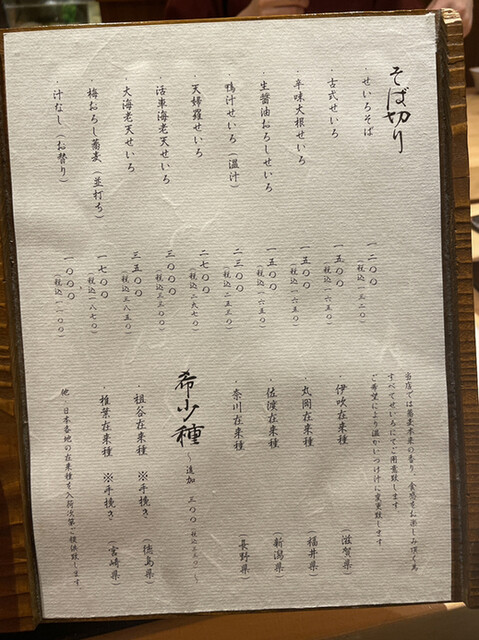 そば切り
・せいろそば 一二〇〇(税込一三二〇)
・古式せいろ 一五〇〇(税込一六五〇)
・辛味大根せいろ 一五〇〇(税込一六五〇)
・生醤油おろしせいろ 一五〇〇(税込一六五〇)
・鴨汁せいろ(温汁) 二三〇〇(税込二五三〇)
・天婦羅せいろ 二七〇〇(税込二九七〇)
・活車海老天せいろ 三〇〇〇(税込三三〇〇)
・大海老天せいろ 三五〇〇(税込三八五〇)
・梅おろし蕎麦(並打ち) 一七〇〇(税込一八七〇)
・汁なし(お替り) 一〇〇〇(税込一一〇〇)
当店では蕎麦本来の香り、食感をお楽しみ頂く為
すべてせいろにてご用意致します
ご希望により温かいつけ汁に変更致します
・伊吹在来種(滋賀県)
・丸岡在来種(福井県)
・佐渡在来種(新潟県)
・奈川在来種(長野県)
希少種 ~追加 三〇〇(税込三三〇)~
・祖谷在来種 ※手挽き(徳島県)
・椎葉在来種 ※手挽き(宮崎県)
他、日本各地の在来種を入荷次第ご提供致します